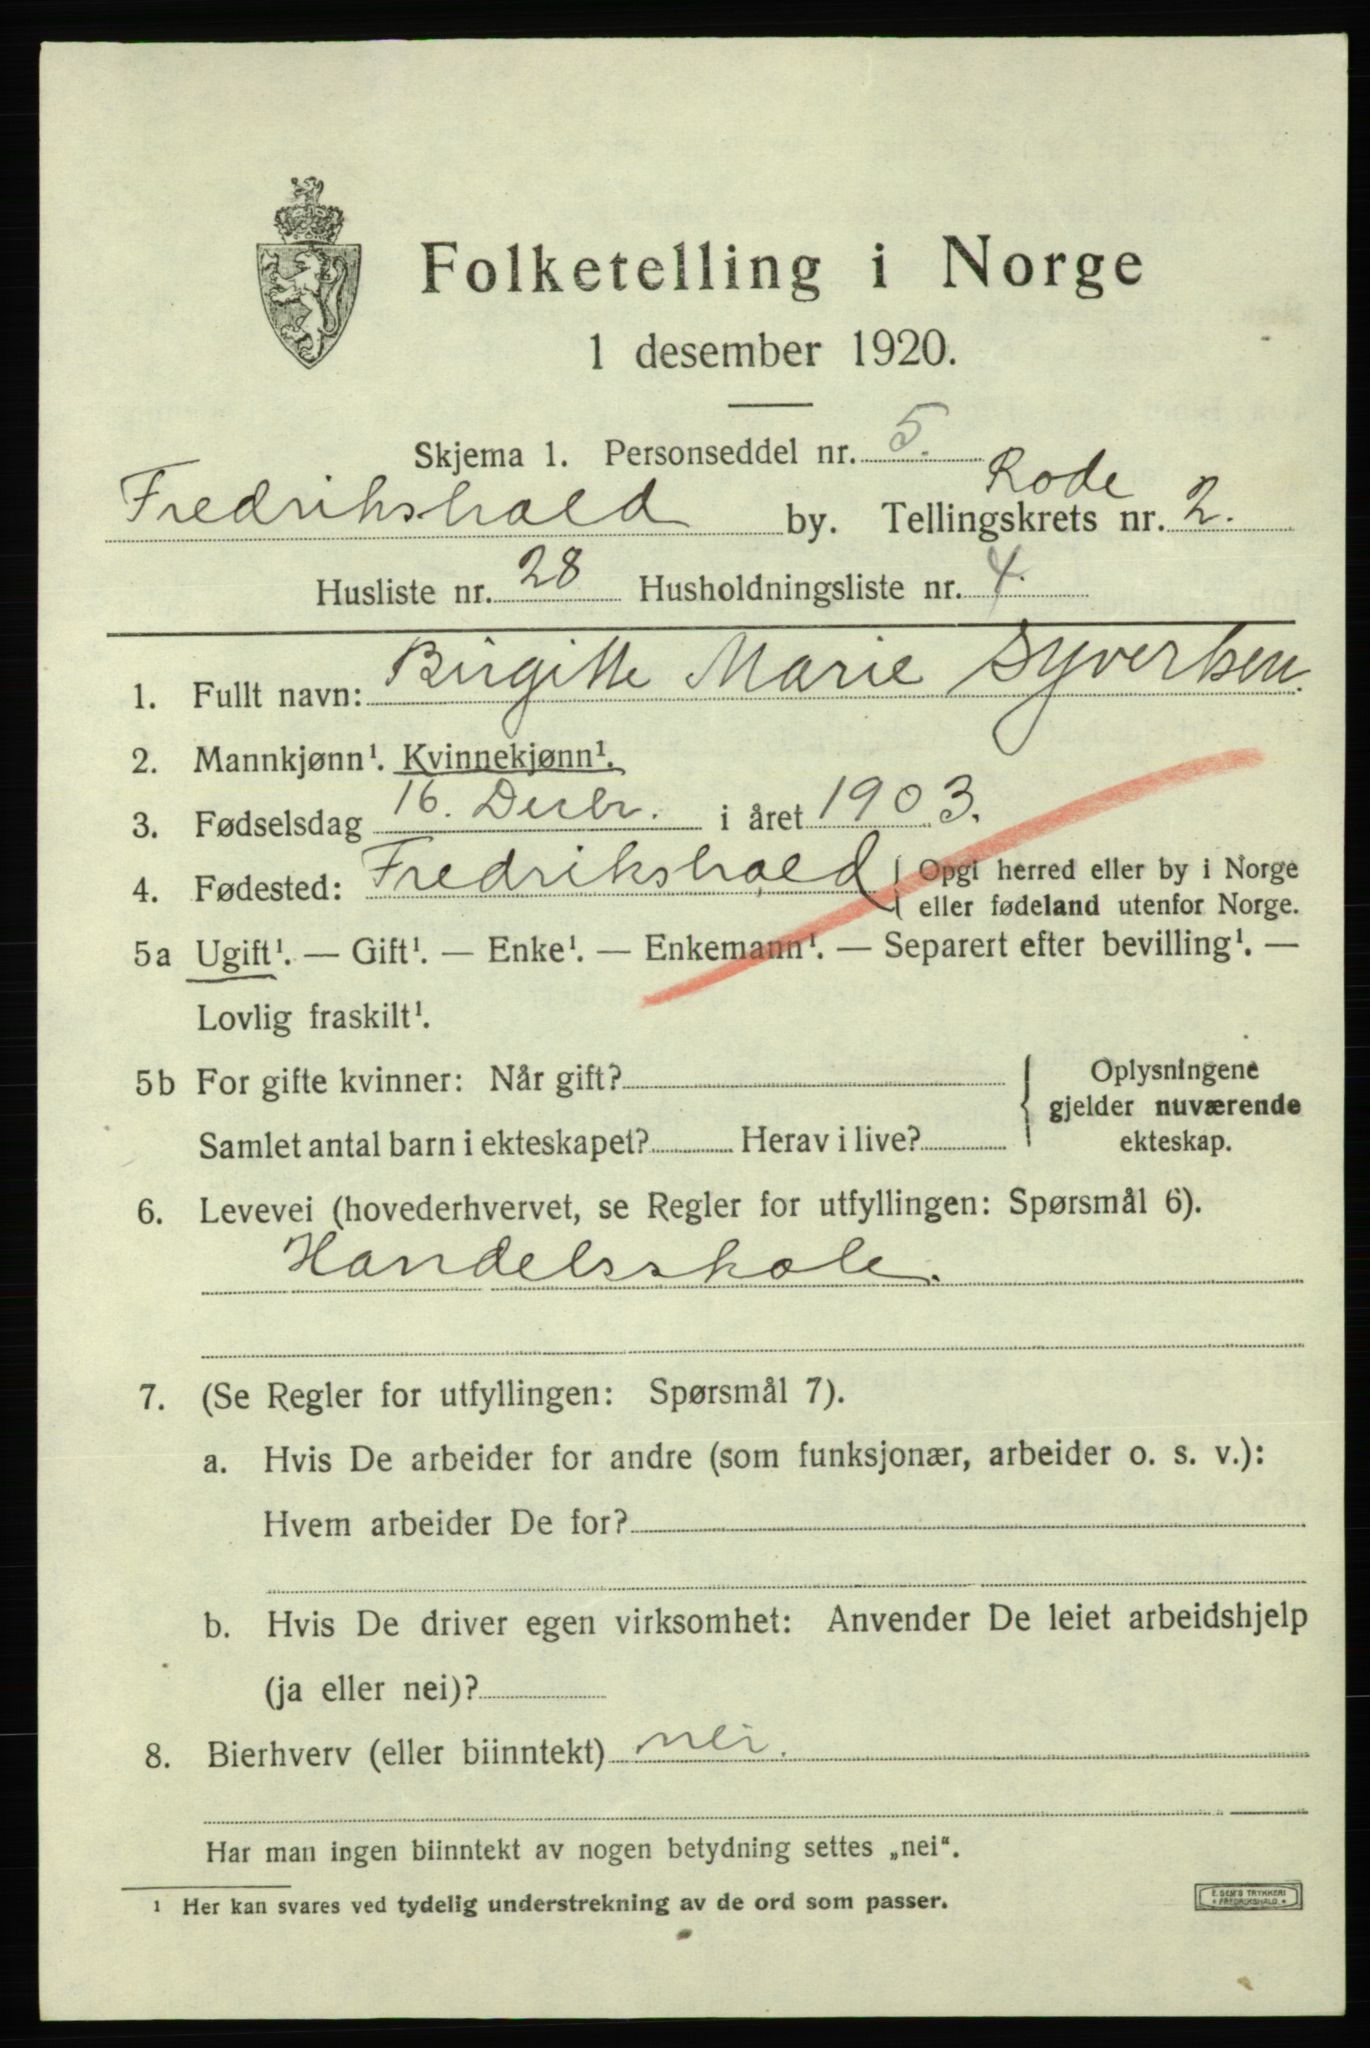 Folketelling i Norge
1 desember 1920.
Skjema 1. Personseddel nr. 5.
Rode
Fredrikshald by. Tellingskrets nr. 2.
Husliste nr. 28 Husholdningsliste nr. 4.
1. Fullt navn: Birgitte Marie Syvertsen.
2. Mannkjønn¹. Kvinnekjønn¹.
3. Fødselsdag 16. Desbr. i året 1903.
4. Fødested: Fredrikshald { Opgi herred eller by i Norge
eller fødeland utenfor Norge.
5a Ugift¹. — Gift¹. — Enke¹. — Enkemann¹. — Separert efter bevilling¹. —
Lovlig fraskilt¹.
5b For gifte kvinner: Når gift? { Oplysningene
gjelder nuværende
Samlet antal barn i ekteskapet? Herav i live? ekteskap.
6. Levevei (hovederhvervet, se Regler for utfyllingen: Spørsmål 6).
Handelsskole.
7. (Se Regler for utfyllingen: Spørsmål 7).
a. Hvis De arbeider for andre (som funksjonær, arbeider o. s. v.):
Hvem arbeider De for?
b. Hvis De driver egen virksomhet: Anvender De leiet arbeidshjelp
(ja eller nei)?
8. Bierhverv (eller biinntekt) nei.
Har man ingen biinntekt av nogen betydning settes „nei“.
¹ Her kan svares ved tydelig understrekning av de ord som passer.
E. SEM'S TRYKKERI
• FREDRIKSHALD •